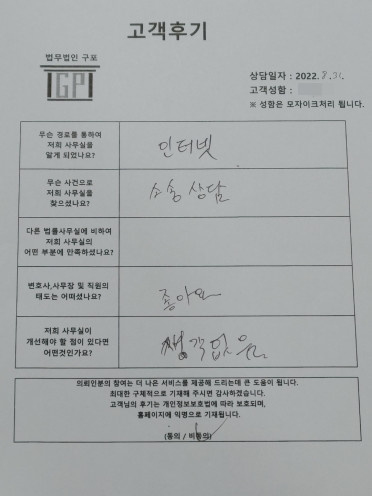 고객후기
법무법인 구포
GP
상담일자 : 2022. 8. 31.
고객성함 :
※ 성함은 모자이크처리 됩니다.
무슨 경로를 통하여
저희 사무실을
알게 되었나요?
인터넷
무슨 사건으로
저희 사무실을
찾으셨나요?
소송상담
다른 법률사무실에 비하여
저희 사무실의
어떤 부분에 만족하셨나요?
변호사,사무장 및 직원의
태도는 어떠셨나요?
좋아요
저희 사무실이
개선해야 할 점이 있다면
어떤것인가요?
생각없음
의뢰인분의 참여는 더 나은 서비스를 제공해 드리는데 큰 도움이 됩니다.
최대한 구체적으로 기재해 주시면 감사하겠습니다.
고객님의 후기는 개인정보보호법에 따라 보호되며,
홈페이지에 익명으로 기재됩니다.
(동의 / 비동의)